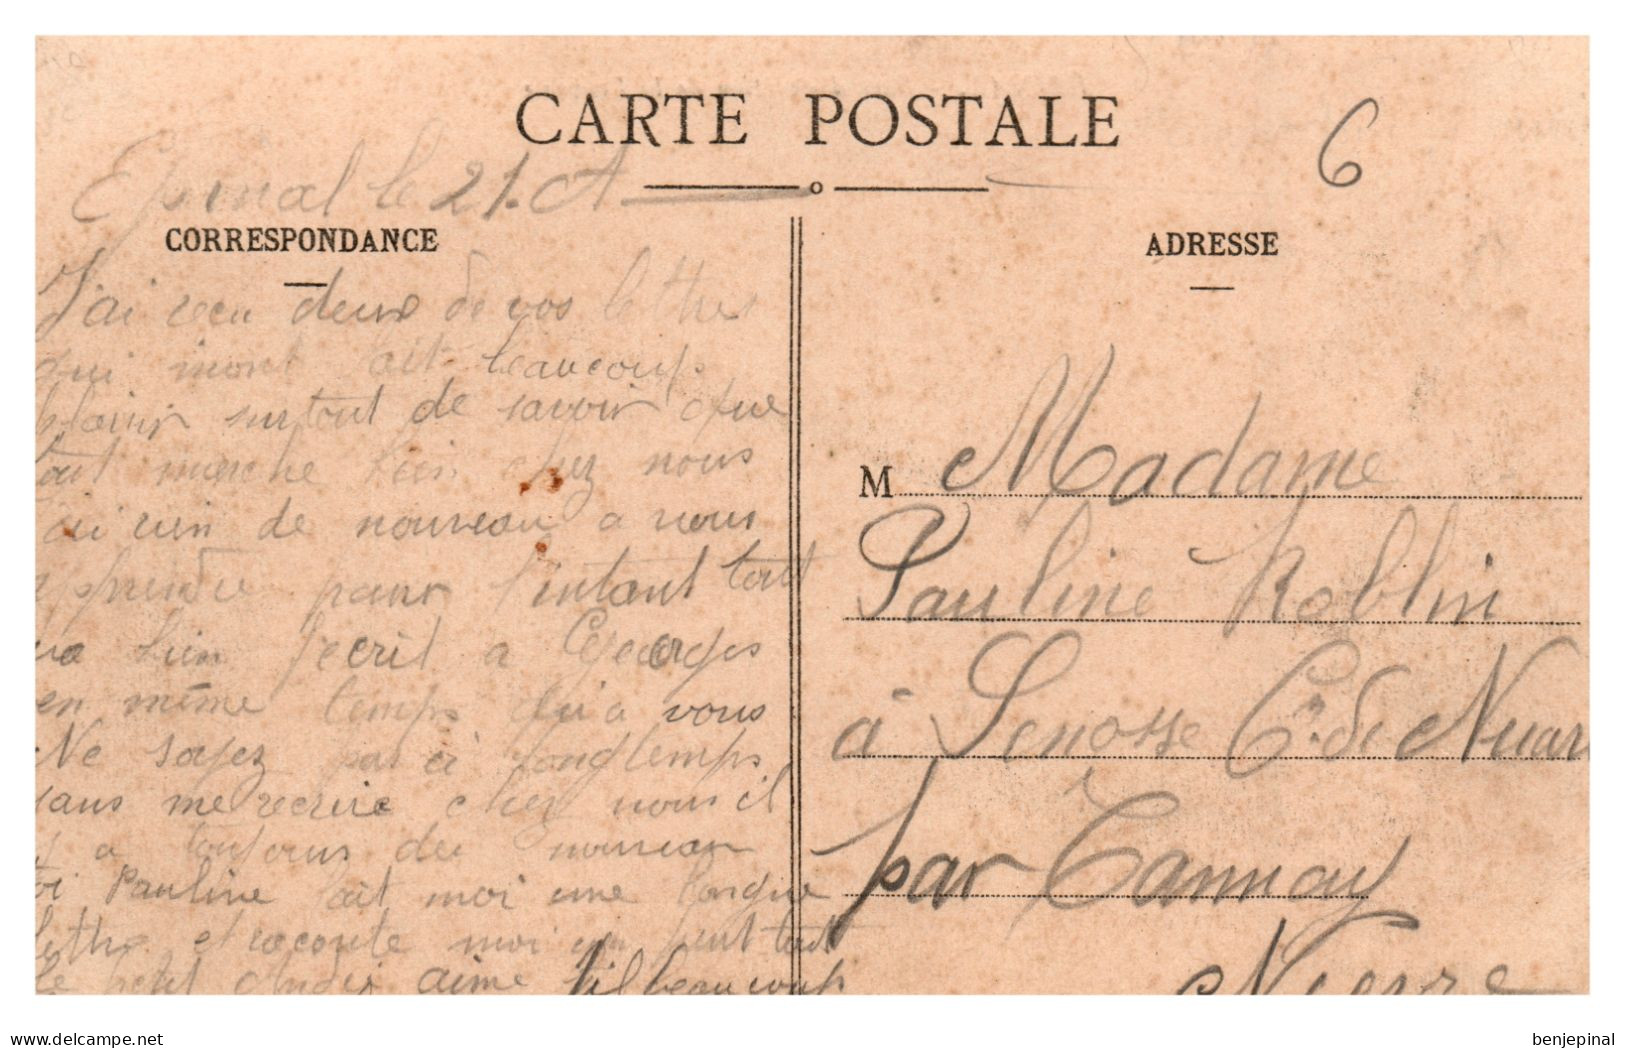 CARTE POSTALE
6
Epinal le 21. A
CORRESPONDANCE
J'ai recu deux de vos lettres
qui mont fait beaucoups
plaisir surtout de savoir que
tout marche bien chez nous
j'ai rien de nouveau a vous
apprendre pour l'intant tout
va bien J'ecrit a Georges
en même temps qu'a vous
Ne soyez pas si longtemps
sans me recrire chez nous il
y a toujours du nouveau
toi Pauline fait moi une longue
lettre et raconte moi un peut tout
le petit André aime t'il beaucoup
ADRESSE
M Madame
Pauline Roblin
à Senosse Cne de Nuars
par Tannay
Nievre
www.delcampe.net
benjepinal